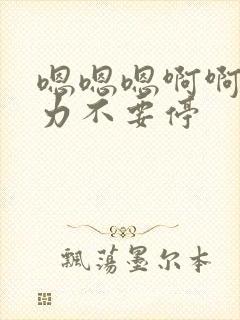 嗯嗯嗯啊啊
力不要停
飘荡墨尔本